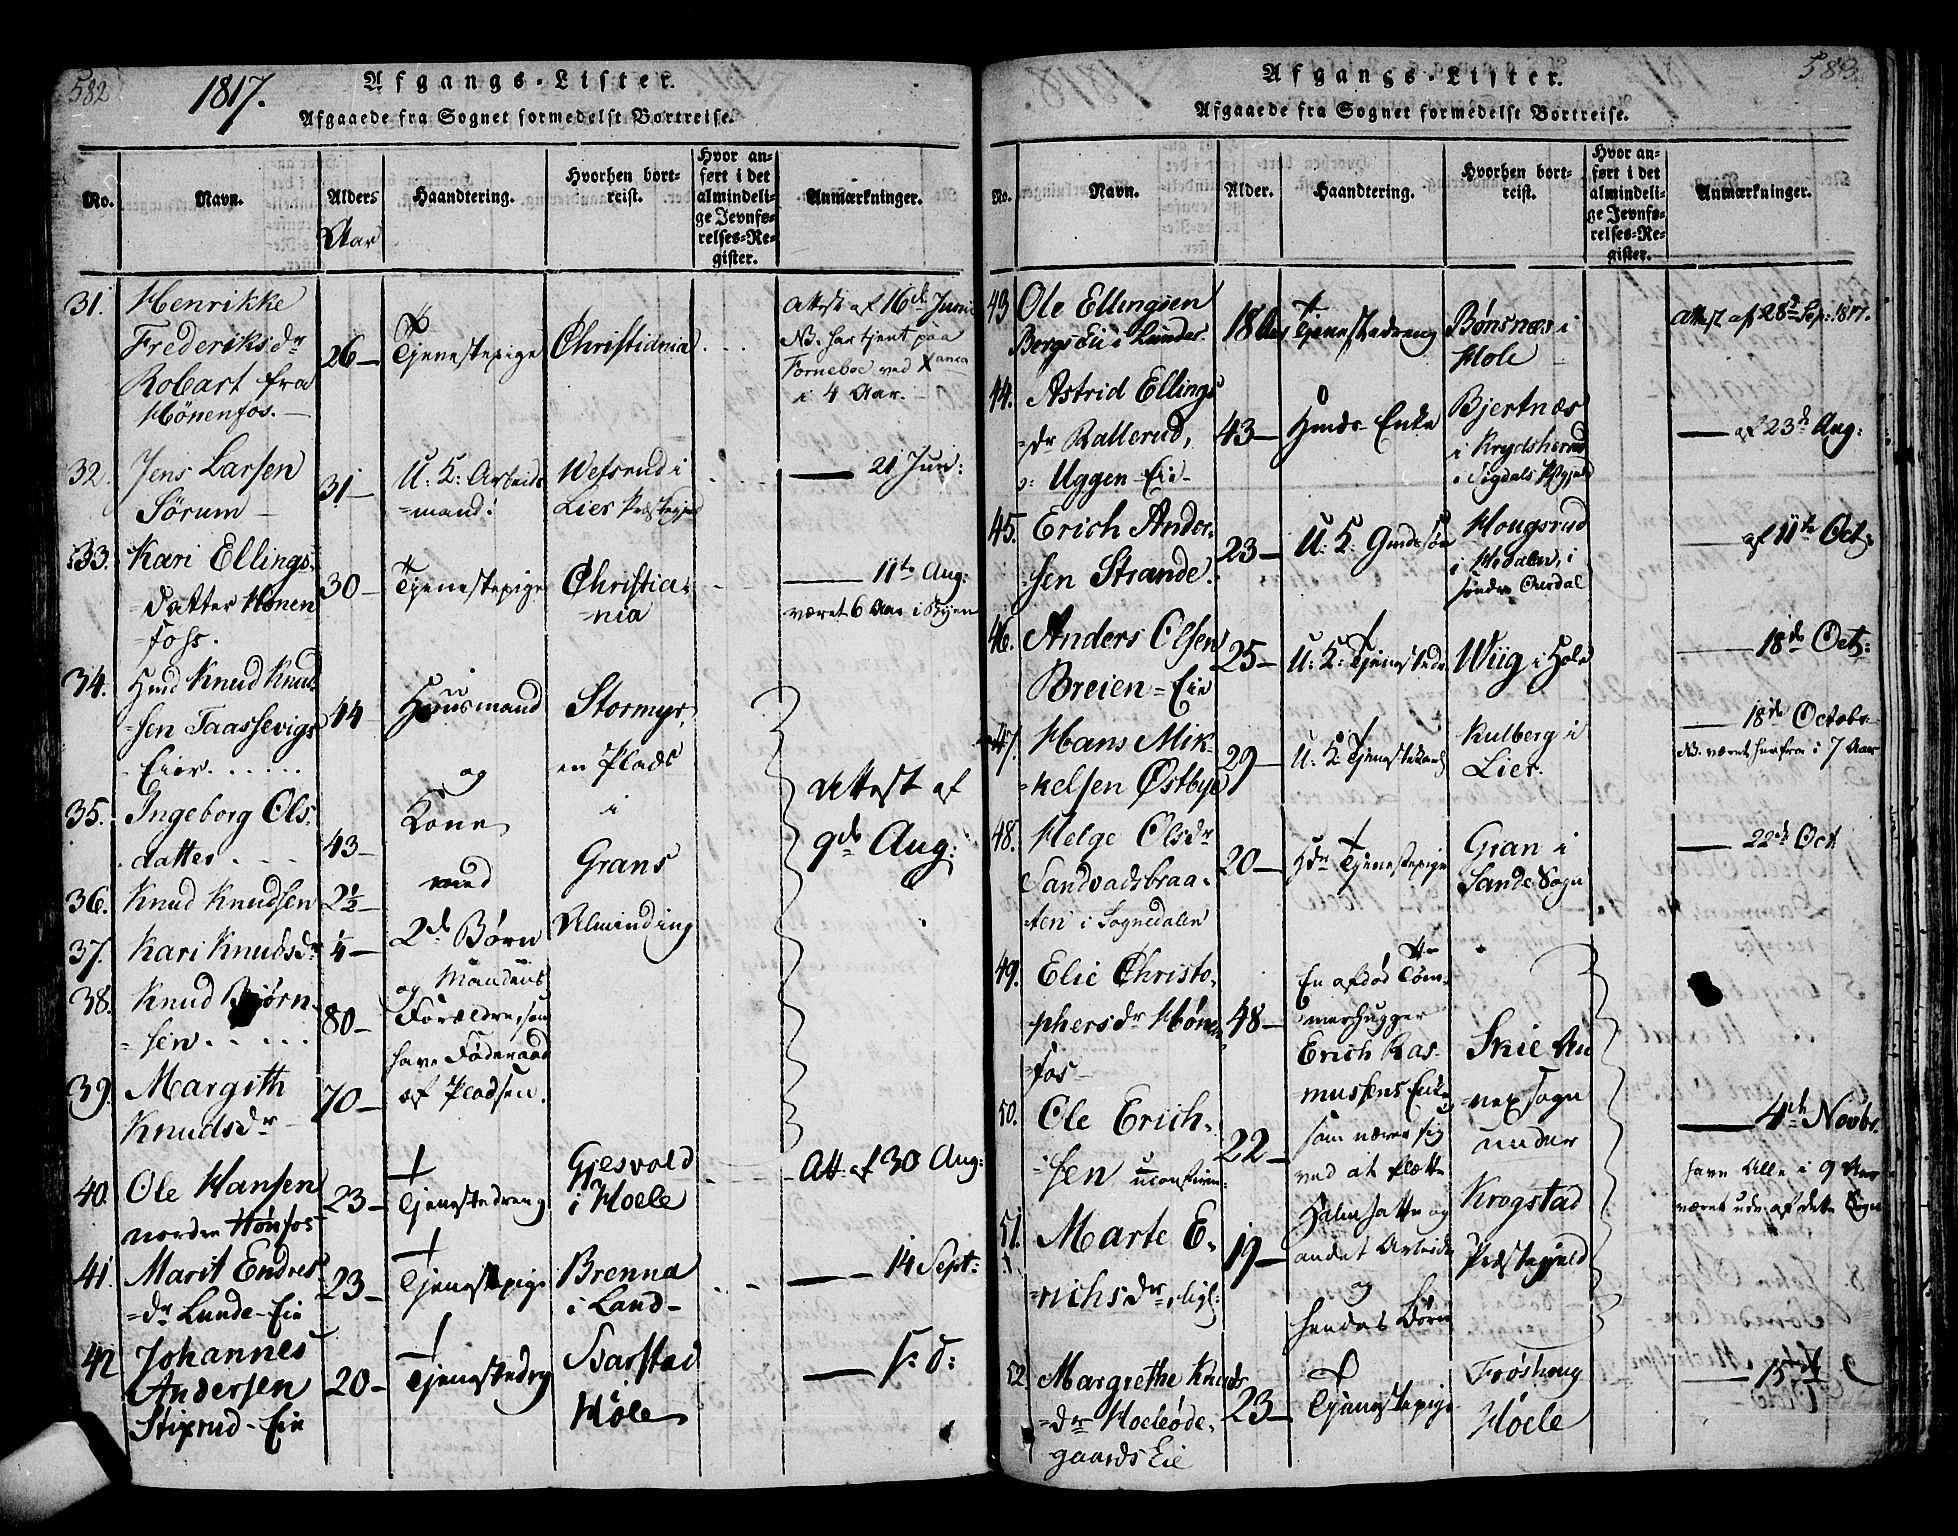 582
1817.
Afgangs-Lister.
Afgaaede fra Sognet formedelst Bortreise.
No.
Navn.
Alders
Aar
Haandtering.
Hvorhen bort-
reist.
Hvor an-
ført i det
almindeli-
ge Jevnfø-
relses-Re-
gister.
Anmærkninger.
31.
Henrikke
Frederiksdr
Robart fra
Hönenfos.
26
Tjenestepige
Christiania
Attest af 16de Junii
NB. har tjent paa
Forneboe ved Xania
i 4 Aar.
32.
Jens Larsen
Sörum
31
U. K: Arbeids
=mand.
Wefsrud i
Lier Præstegjeld
21 Jun:
33.
Kari Ellings-
datter Hönen
=foss.
30
Tjenestepige
Christia-
=nia
11te Aug:
været 6 Aar i Byen
34.
Hmd Knud Knud-
=sen Taassevigs
Eier
44
Huusmand
og
Stormyr,
en Plads
i
35.
Ingeborg Ols-
datter
43
Kone
med
Grans
Attest af
9de Aug:
36.
Knud Knudsen
2½
2de Børn
Alminding
37.
Kari Knudsdr
¼
og Mandens
38.
Knud Bjørn-
=sen
80
Forældre, som
have Føderaad
39.
Margith
Knudsdr
70
af Pladsen.
40.
Ole Hansen
nordre Hönfos
23
Tjenestedreng
Gjesvold
i Hoele
Att. af 30 Aug:
41.
Marit Endres
=dr Lunde-Eie
23
Tjenestepige
Brenna
i Land
14 Sept:
42
Johannes
Andersen
Stixrud-Eie
20
Tjenestedrg
Svarstad
Hole
s: d:
583.
Afgangs-Lister.
Afgaaede fra Sognet formedelst Bortreise.
No.
Navn.
Alder.
Haandtering.
Hvorhen bort-
reist.
Hvor an-
ført i det
almindeli-
ge Jevnfø-
relses-Re-
gister.
Anmærkninger.
43
Ole Ellingsen
Bergs Eie i Lunder
18 Aar
Tjenestedreng
Bønsnæs i
Hole
Attest af 28de Sep: 1817.
44.
Astrid Ellings
=dr Rallerud,
Uggen-Eie
43
Hmds-Enke
Bjertnæs
i Krydsherred
i Sigdals Pstgjeld
af 23de Aug:
45.
Erich Ander-
=sen Strande.
23
U. K. Gmdssøn
Hougsrud
i Hedalen, i
søndre Ourdal
af 11te Oct:
46.
Anders Olsen
Breien=Eie
25
U: K: Tjenestedr
Wiig i Hole
18de Oct:
47.
Hans Mik-
kelsen Østbye
29
U. K. Tjenestekarl
Kulberg i
Lier.
18de Octobr
NB. været herfra i 7 Aar
48.
Helge Olsdr
Sandvadsbraa-
ten i Sognedalen
20
Tjenestepige
Gran i
Sande Sogn
22de Oct
49.
Elie Christo-
phersdr Hönen
=fos
48
En afdød Töm-
merhugger
Erich Ras-
mussens Enke
Skie An
=nexsogn
50.
Ole Erich-
=sen uconfirm:
22
som nærer sig
ved at flette
under
4de Novbr.
have Alle i 9 Aar
været ude af dette Sogn
51.
Marte E-
=richsdr, eligl:
19
Halmhatte og
andet Arbeide
og
hendes Børn
Krogstad
Præstegjeld
52
Margrethe Knuds
=dr Hoeleöde-
gaards Eie
23
Tjenestepige
Frøshoug
Hoele
15de